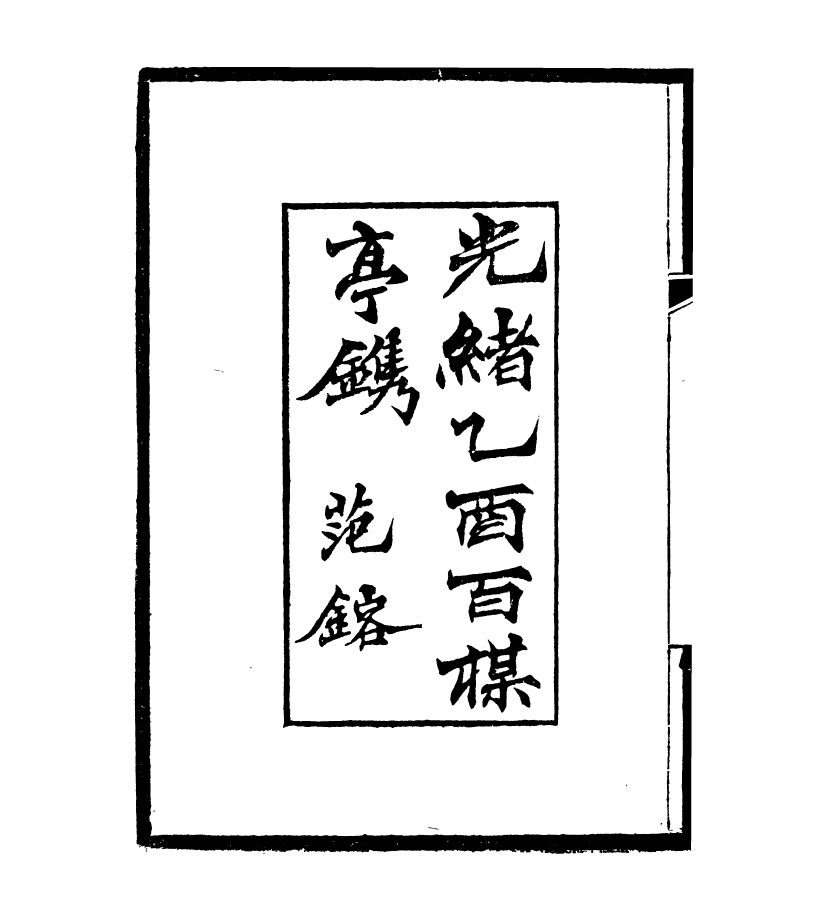 光緒乙酉百楳
亭鐫　范鎔